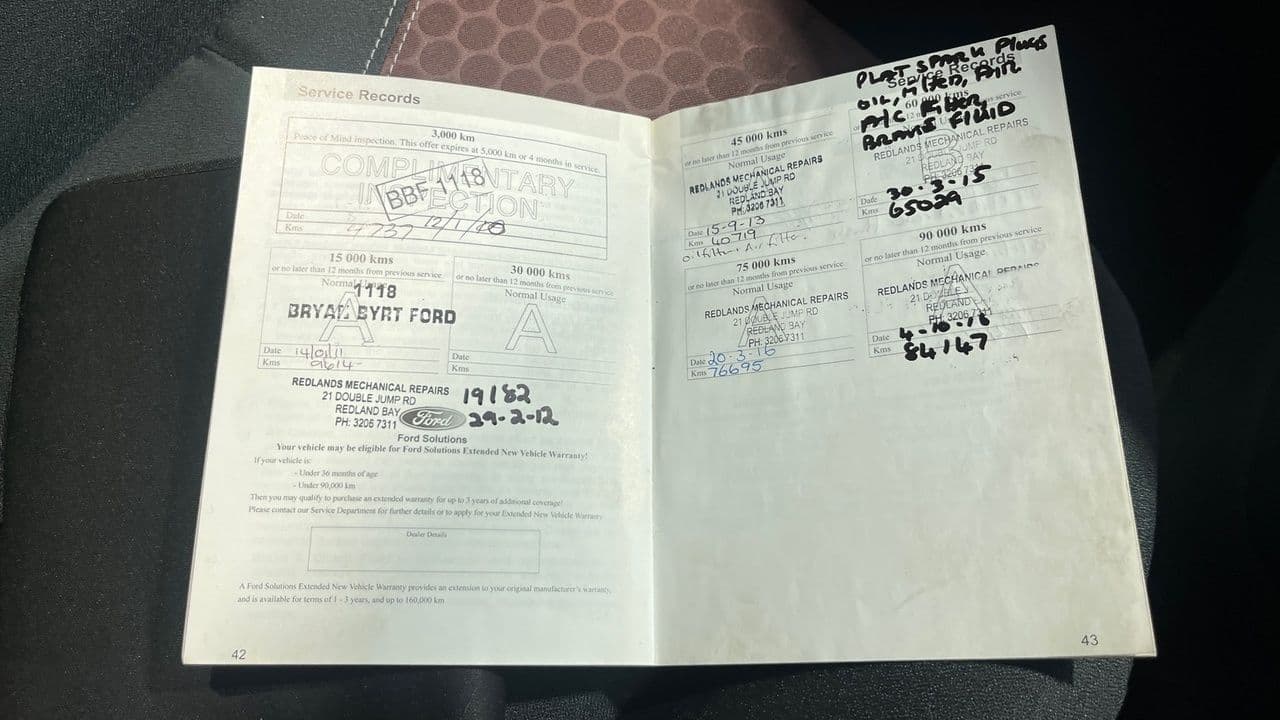 Service Records
3,000 km
Peace of Mind inspection. This offer expires at 5,000 km or 4 months in service.
COMPLIMENTARY
INSPECTION
BBF 1118
Date 12/1/10
Kms 4737
15 000 kms
or no later than 12 months from previous service
Normal Usage
1118
BRYAN BYRT FORD
A
Date 14/01/11
Kms 9614
30 000 kms
or no later than 12 months from previous service
Normal Usage
A
Date
Kms
REDLANDS MECHANICAL REPAIRS
21 DOUBLE JUMP RD
REDLAND BAY
PH: 3206 7311
19182
29-2-12
Ford
Ford Solutions
Your vehicle may be eligible for Ford Solutions Extended New Vehicle Warranty!
If your vehicle is:
- Under 36 months of age
- Under 90,000 km
Then you may qualify to purchase an extended warranty for up to 3 years of additional coverage!
Please contact our Service Department for further details or to apply for your Extended New Vehicle Warranty
Dealer Details
A Ford Solutions Extended New Vehicle Warranty provides an extension to your original manufacturer's warranty,
and is available for terms of 1 - 3 years, and up to 160,000 km
42
Service Records
45 000 kms
or no later than 12 months from previous service
Normal Usage
REDLANDS MECHANICAL REPAIRS
21 DOUBLE JUMP RD
REDLAND BAY
PH: 3206 7311
Date 15-9-13
Kms 40719
oil filter, Air filter.
PLAT SPARK PLUGS
OIL, FILTER, AIR
A/C FILTER,
BRAKE FLUID
60 000 kms
REDLANDS MECHANICAL REPAIRS
21 DOUBLE JUMP RD
REDLAND BAY
PH: 3206 7311
B
Date 30-3-15
Kms 65029
75 000 kms
or no later than 12 months from previous service
Normal Usage
REDLANDS MECHANICAL REPAIRS
21 DOUBLE JUMP RD
REDLAND BAY
PH: 3206 7311
A
Date 20-3-16
Kms 76695
90 000 kms
or no later than 12 months from previous service
Normal Usage
REDLANDS MECHANICAL REPAIRS
21 DOUBLE J
REDLAND
PH: 3206 7311
A
Date 4-10-16
Kms 84147
43